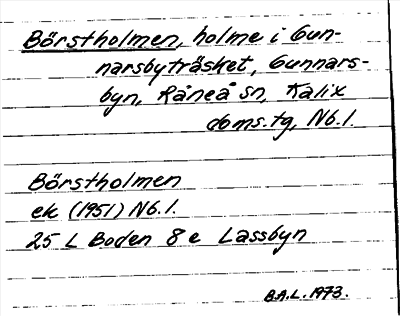 Börstholmen, holme i Gun-
narsbyträsket, Gunnars-
byn, Råneå sn, Kalix
doms.tg, Nb.l.
Börstholmen
ek (1951) Nb.l.
25 L Boden 8 e Lassbyn
B.A.L. 1973.